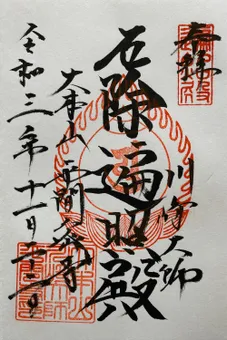 奉拝
川崎大師
厄除遍照殿
大本山 平間寺
令和三年十一月二十二日